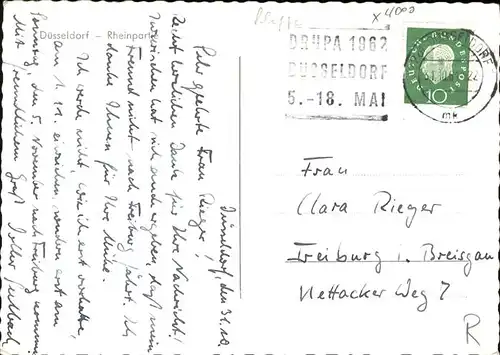 Düsseldorf – Rheinpartie
x 4000
DRUPA 1962
DÜSSELDORF
5.-18. MAI
DEUTSCHE BUNDESPOST
10
mk
Düsseldorf, den 31.10.
Sehr geehrte Frau Rieger!
Recht herzlichen Dank für Ihre Nachricht!
Inzwischen hat sich ergeben, daß mein
Freund nicht nach Freiburg fährt. Ich
danke Ihnen für Ihre Mühe.
Ich werde nicht, wie ich erst vorhatte,
am 1.11. einziehen, sondern erst am
Sonntag, den 5. November nach Freiburg kommen.
Mit freundlichem Gruß
Frau
Clara Rieger
Freiburg i. Breisgau
Nettacker Weg 7
R